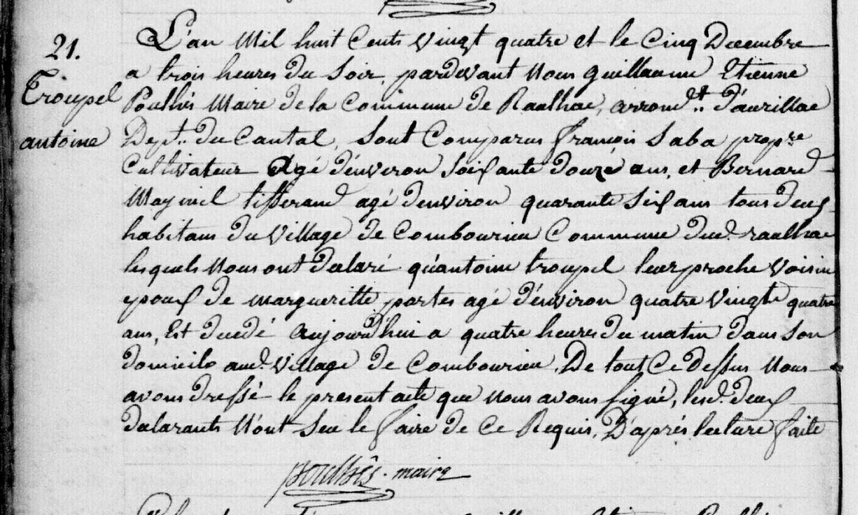 21.
Troupel
antoine
L'an Mil huit Cents vingt quatre et le Cinq Decembre
a trois heures du Soir, pardevant Nous guillaume Etienne
Poulhès Maire de la Commune de Raulhac, arrondt. d'aurillac
Dept. du Cantal, Sont Comparus francois Laba propre
Cultivateur Agé d'environ Soixante douze ans, et Bernard
tisserand agé d'environ quarante Six ans tous deux
habitans du Village de Combourieu Commune dud. raulhac
lesquels Nous ont declaré qu'antoine troupel leur proche Voisin
epoux de margueritte portes agé d'environ quatre Vingts quatre
ans, Est decedé aujourd'hui a quatre heures du matin dans Son
domicile aud. Village de Combourieu. De tout Ce Dessus Nous
avons dressé le present acte que Nous avons signé, lesd. deux
declarants N'ont Seu le faire de Ce Requis, D'après lecture faite
poulhès. maire